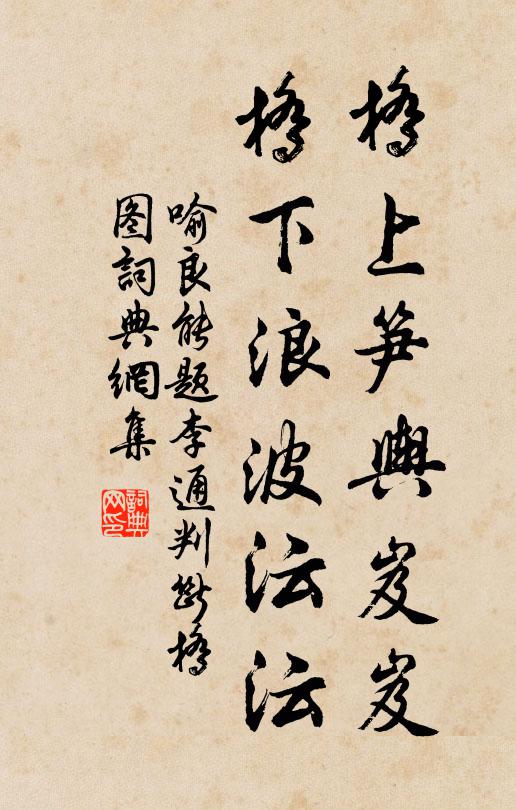 橋上笋輿岌岌
橋下浪波沄沄
喻良能題李通判斷橋
图詞典網集
詞典网印